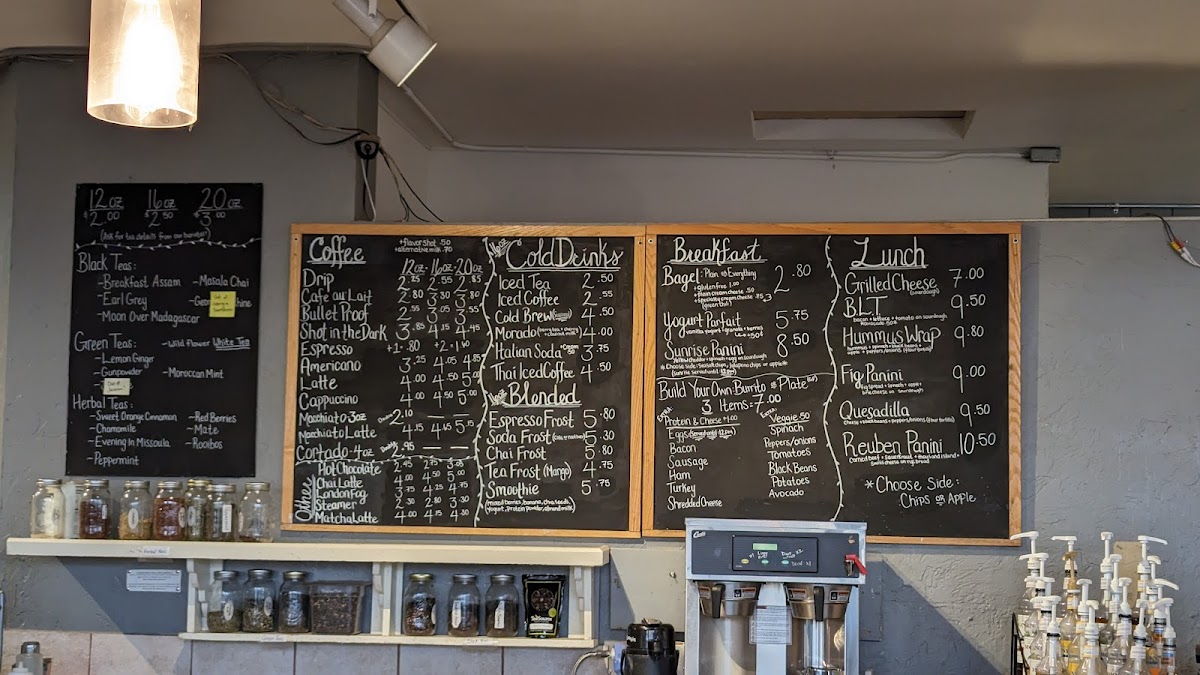 12oz 16oz 20oz
$2.00 $2.50 $3.00
(Ask for tea details from our barista!)
Black Teas:
-Breakfast Assam -Masala Chai
-Earl Grey
-Moon Over Madagascar
Green Teas: -Wild Flower White Tea
-Lemon Ginger
-Gunpowder -Moroccan Mint
Herbal Teas:
-Sweet Orange Cinnamon -Red Berries
-Chamomile -Mate
-Evening In Missoula -Rooibos
-Peppermint
Coffee
+flavor shot .50
+alternative milk .70
12oz 16oz 20oz
Drip 2.25 2.55 2.85
Cafe au Lait 2.80 3.30 3.80
Bullet Proof 2.55 3.05
Shot in the Dark 3.85 4.15 4.45
Espresso +1.80 +2.
Americano 3.25 4.05 4.85
Latte 4.00 4.50 5.00
Cappuccino 4.00 4.50 5.00
Macchiato 3oz 2.10
Macchiato Latte 4.15 4.65 5.15
Cortado 4oz 2.95
Other
Hot Chocolate 2.45 2.75
Chai Latte 4.00 4.50 5.00
London Fog 3.75
Steamer 2.30 2.80 3.30
Matcha Latte 4.00 4.15 4.30
16oz Cold Drinks
Iced Tea 2.50
Iced Coffee 2.55
Cold Brew 4.00
Morado 4.00
Italian Soda +Cream .50 3.75
Thai Iced Coffee 4.50
16oz Blended
Espresso Frost 5.80
Soda Frost 5.30
Chai Frost 5.80
Tea Frost (Mango) 4.75
Smoothie 5.75
(mixed berries, banana, chia seeds,
yogurt, protein powder, almond milk)
Breakfast
Bagel: Plain or Everything 2.80
+gluten free 1.00
+plain cream cheese .50
+specialty cream cheese .75
Yogurt Parfait 5.75
vanilla yogurt + granola + berries
Sunrise Panini 8.50
Yellow cheddar + spinach + egg on sourdough
* Choose side: sea salt chips, jalapeno chips or apple
(sunrise served until 12pm)
Build Your Own Burrito or Plate
3 Items = 7.00
Extra Protein & Cheese +1.00
Eggs (Served until 12pm)
Bacon
Sausage
Ham
Turkey
Shredded Cheese
Extra Veggie .50
Spinach
Peppers/onions
Tomatoes
Black Beans
Potatoes
Avocado
Lunch
Grilled Cheese 7.00
(Sourdough)
B.L.T 9.50
bacon + lettuce + tomato on sourdough
Hummus Wrap 9.80
Fig Panini 9.00
fig spread + spinach + apple +
Quesadilla 9.50
Reuben Panini 10.50
corned beef + sauerkraut + thousand island +
swiss cheese on rye bread
*Choose Side:
Chips or Apple
Curtis